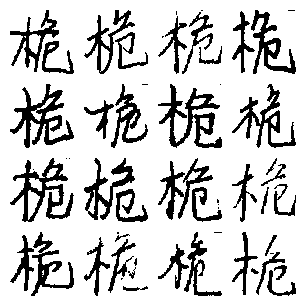 桅桅桅桅
桅桅桅桅
桅桅桅桅
桅桅桅桅